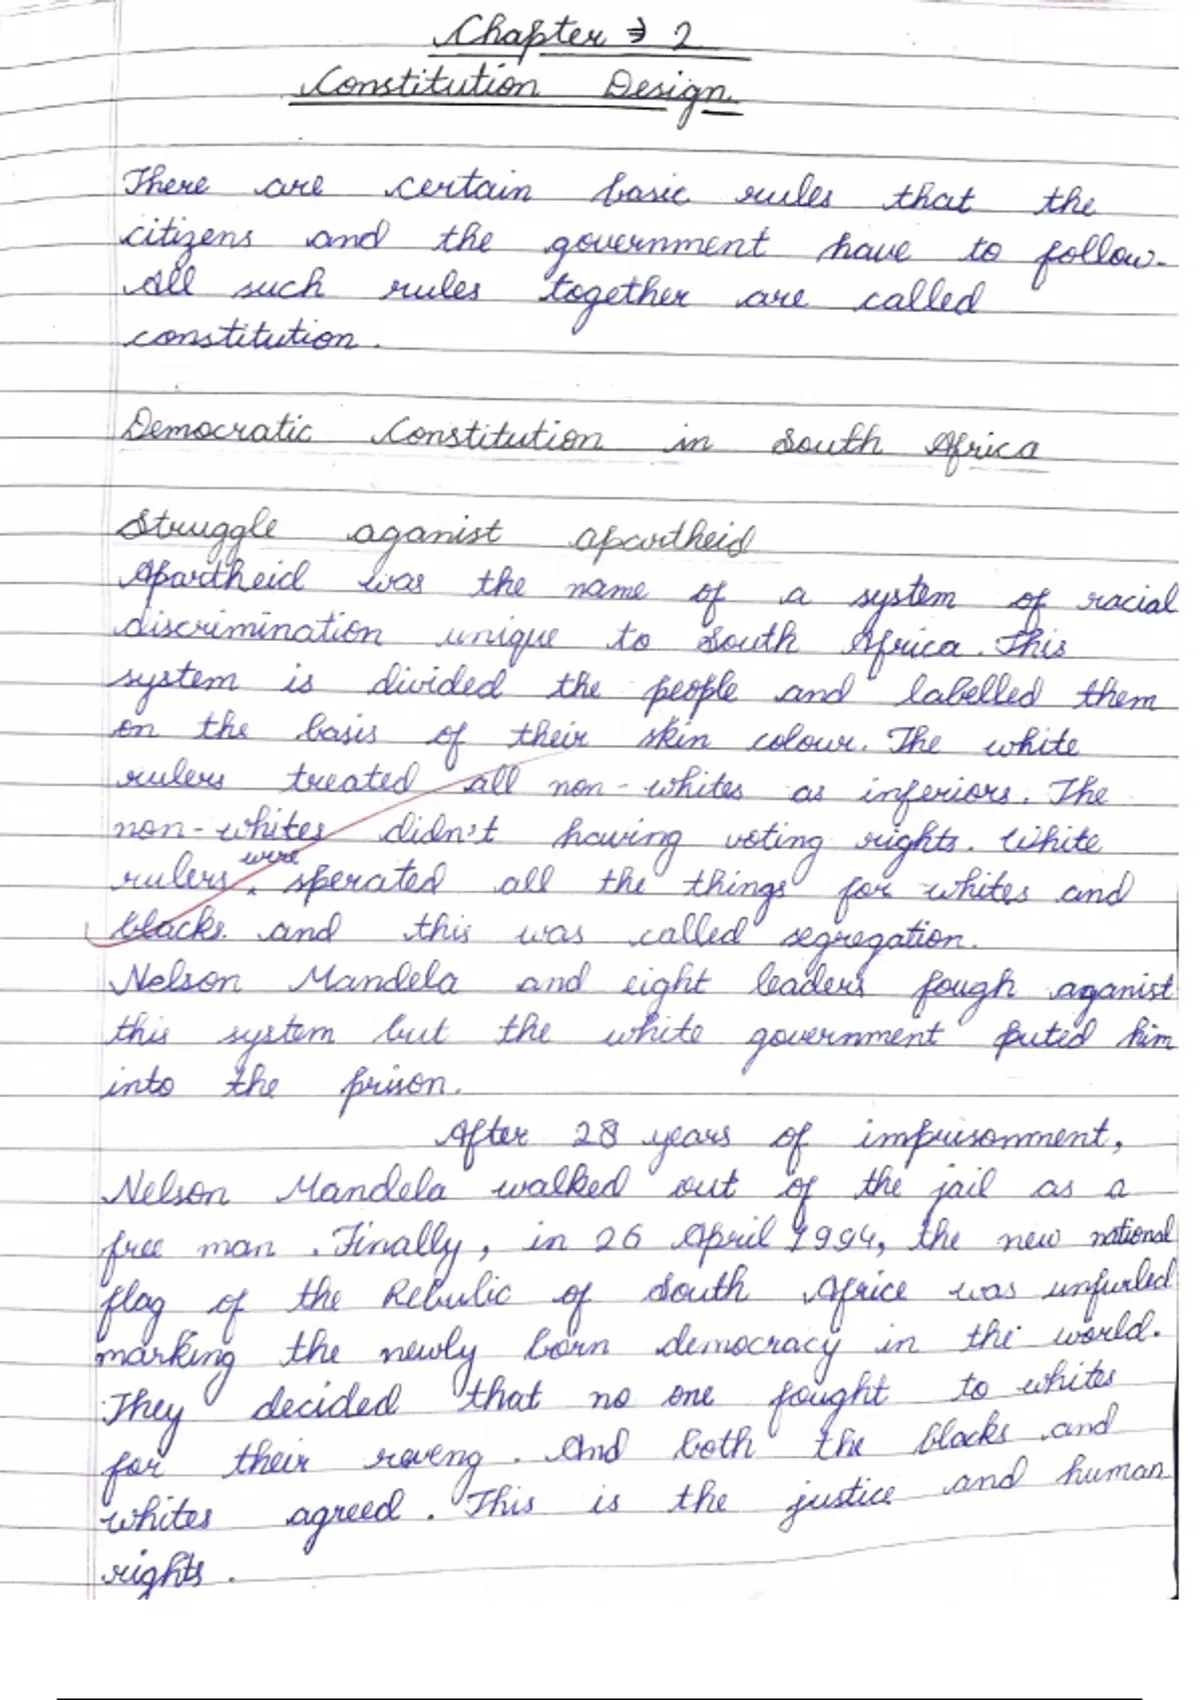 Chapter ⇒ 2
Constitution Design.
There are certain basic rules that the
citizens and the government have to follow.
All such rules together are called
constitution.
Democratic Constitution in South Africa
Struggle aganist apartheid
Apartheid was the name of a system of racial
discrimination unique to South Africa. This
system is divided the people and labelled them
on the basis of their skin colour. The white
rulers treated all non-whites as inferiors. The
non-whites didn't having voting rights. White
rulers were sperated all the things for whites and
blacks. and this was called segregation.
Nelson Mandela and eight leaders fough aganist
this system but the white government puted him
into the prison.
After 28 years of imprisonment,
Nelson Mandela walked out of the jail as a
free man. Finally, in 26 April 1994, the new national
flag of the Rebulic of South Africe was unfurled
marking the newly born democracy in the world.
They decided that no one fought to whites
for their reveng. And both the blacks and
whites agreed. This is the justice and human
rights.